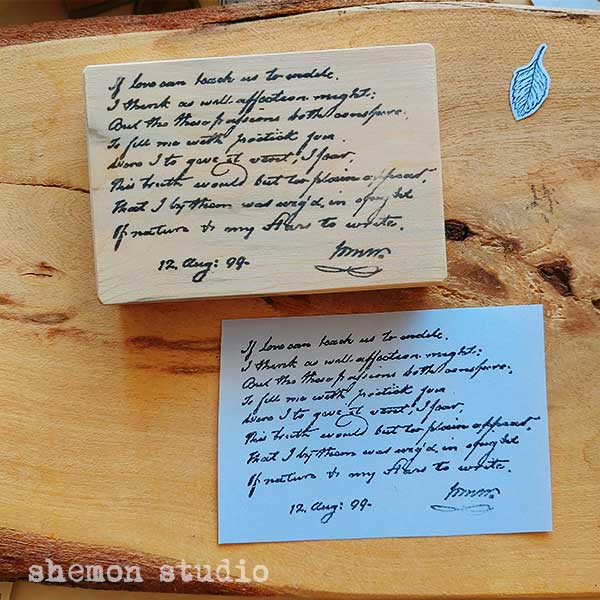 If love can teach us to endite.
I think as will affection might:
But tho these passions both conspire.
To fill me with poetick fire
Were I to gave it vent, I fear,
This truth would but too plain appear,
That I by them was urg'd, in spight
Of nature & my stars to write.
12. Aug: 99.
If love can teach us to endite.
I think as will affection might:
But tho these passions both conspire.
To fill me with poetick fire
Were I to gave it vent, I fear,
This truth would but too plain appear,
That I by them was urg'd, in spight
Of nature & my stars to write.
12. Aug: 99.
shemon studio